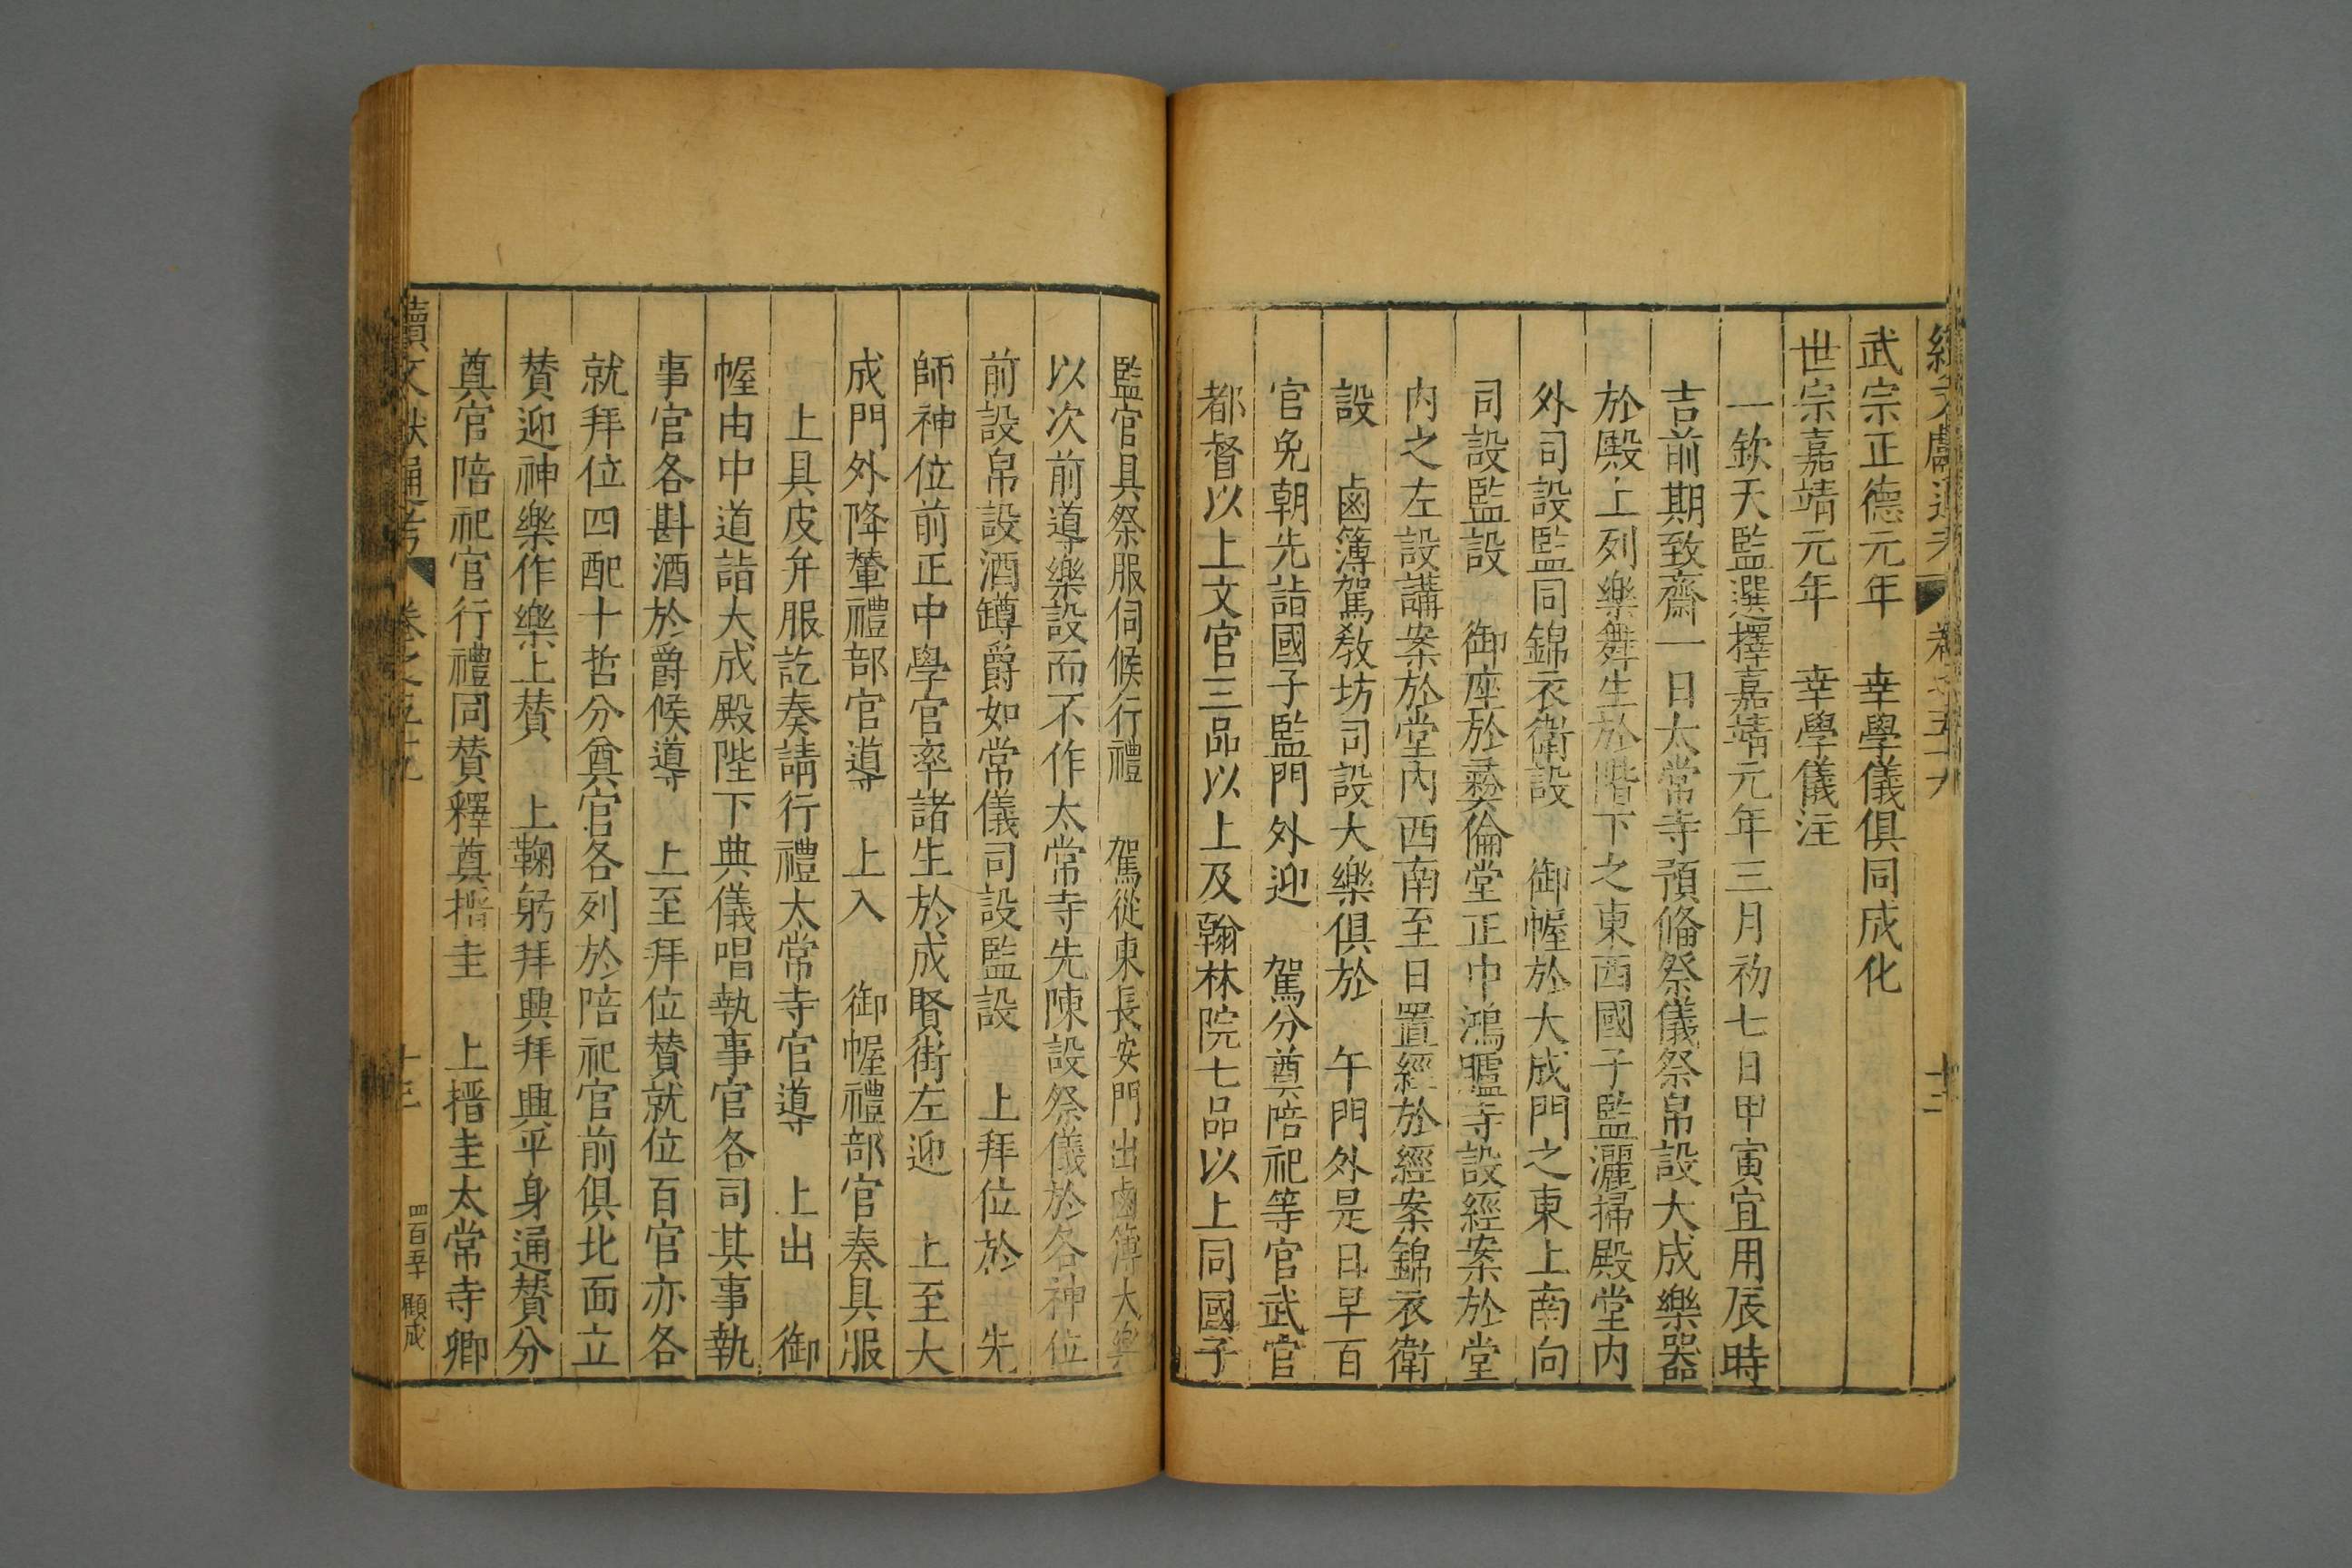 武宗正德元年　幸學儀俱同成化
世宗嘉靖元年　幸學儀注
一欽天監選擇嘉靖元年三月初七日甲寅宜用辰時
吉前期致齋一日太常寺預俻祭儀祭帛設大成樂器
於殿上列樂舞生於階下之東西國子監灑掃殿堂內
外司設監同錦衣衛設　御幄於大成門之東上南向
司設監設　御座於彞倫堂正中鴻臚寺設經案於堂
内之左設講案於堂內西南至日置經於經案錦衣衛
設　鹵簿駕教坊司設大樂俱於　午門外是日早百
官免朝先詣國子監門外迎　駕分奠陪祀等官武官
都督以上文官三品以上及翰林院七品以上同國子
監官具祭服伺候行禮　駕從東長安門出鹵簿大樂
以次前導樂設而不作太常寺先陳設祭儀於各神位
前設帛設酒罇爵如常儀司設監設　上拜位於　先
師神位前正中學官率諸生於成賢街左迎　上至大
成門外降輦禮部官導　上入　御幄禮部官奏具服
上具皮弁服訖奏請行禮太常寺官導　上出　御
幄由中道詣大成殿陛下典儀唱執事官各司其事執
事官各斟酒於爵候導　上至拜位贊就位百官亦各
就拜位四配十哲分奠官各列於陪祀官前俱北面立
贊迎神樂作樂上贊　上鞠躬拜興拜興平身通贊分
奠官陪祀官行禮同贊釋奠搢圭　上搢圭太常寺卿
續文獻通考　卷之五十九　十三　四百五十　顧成